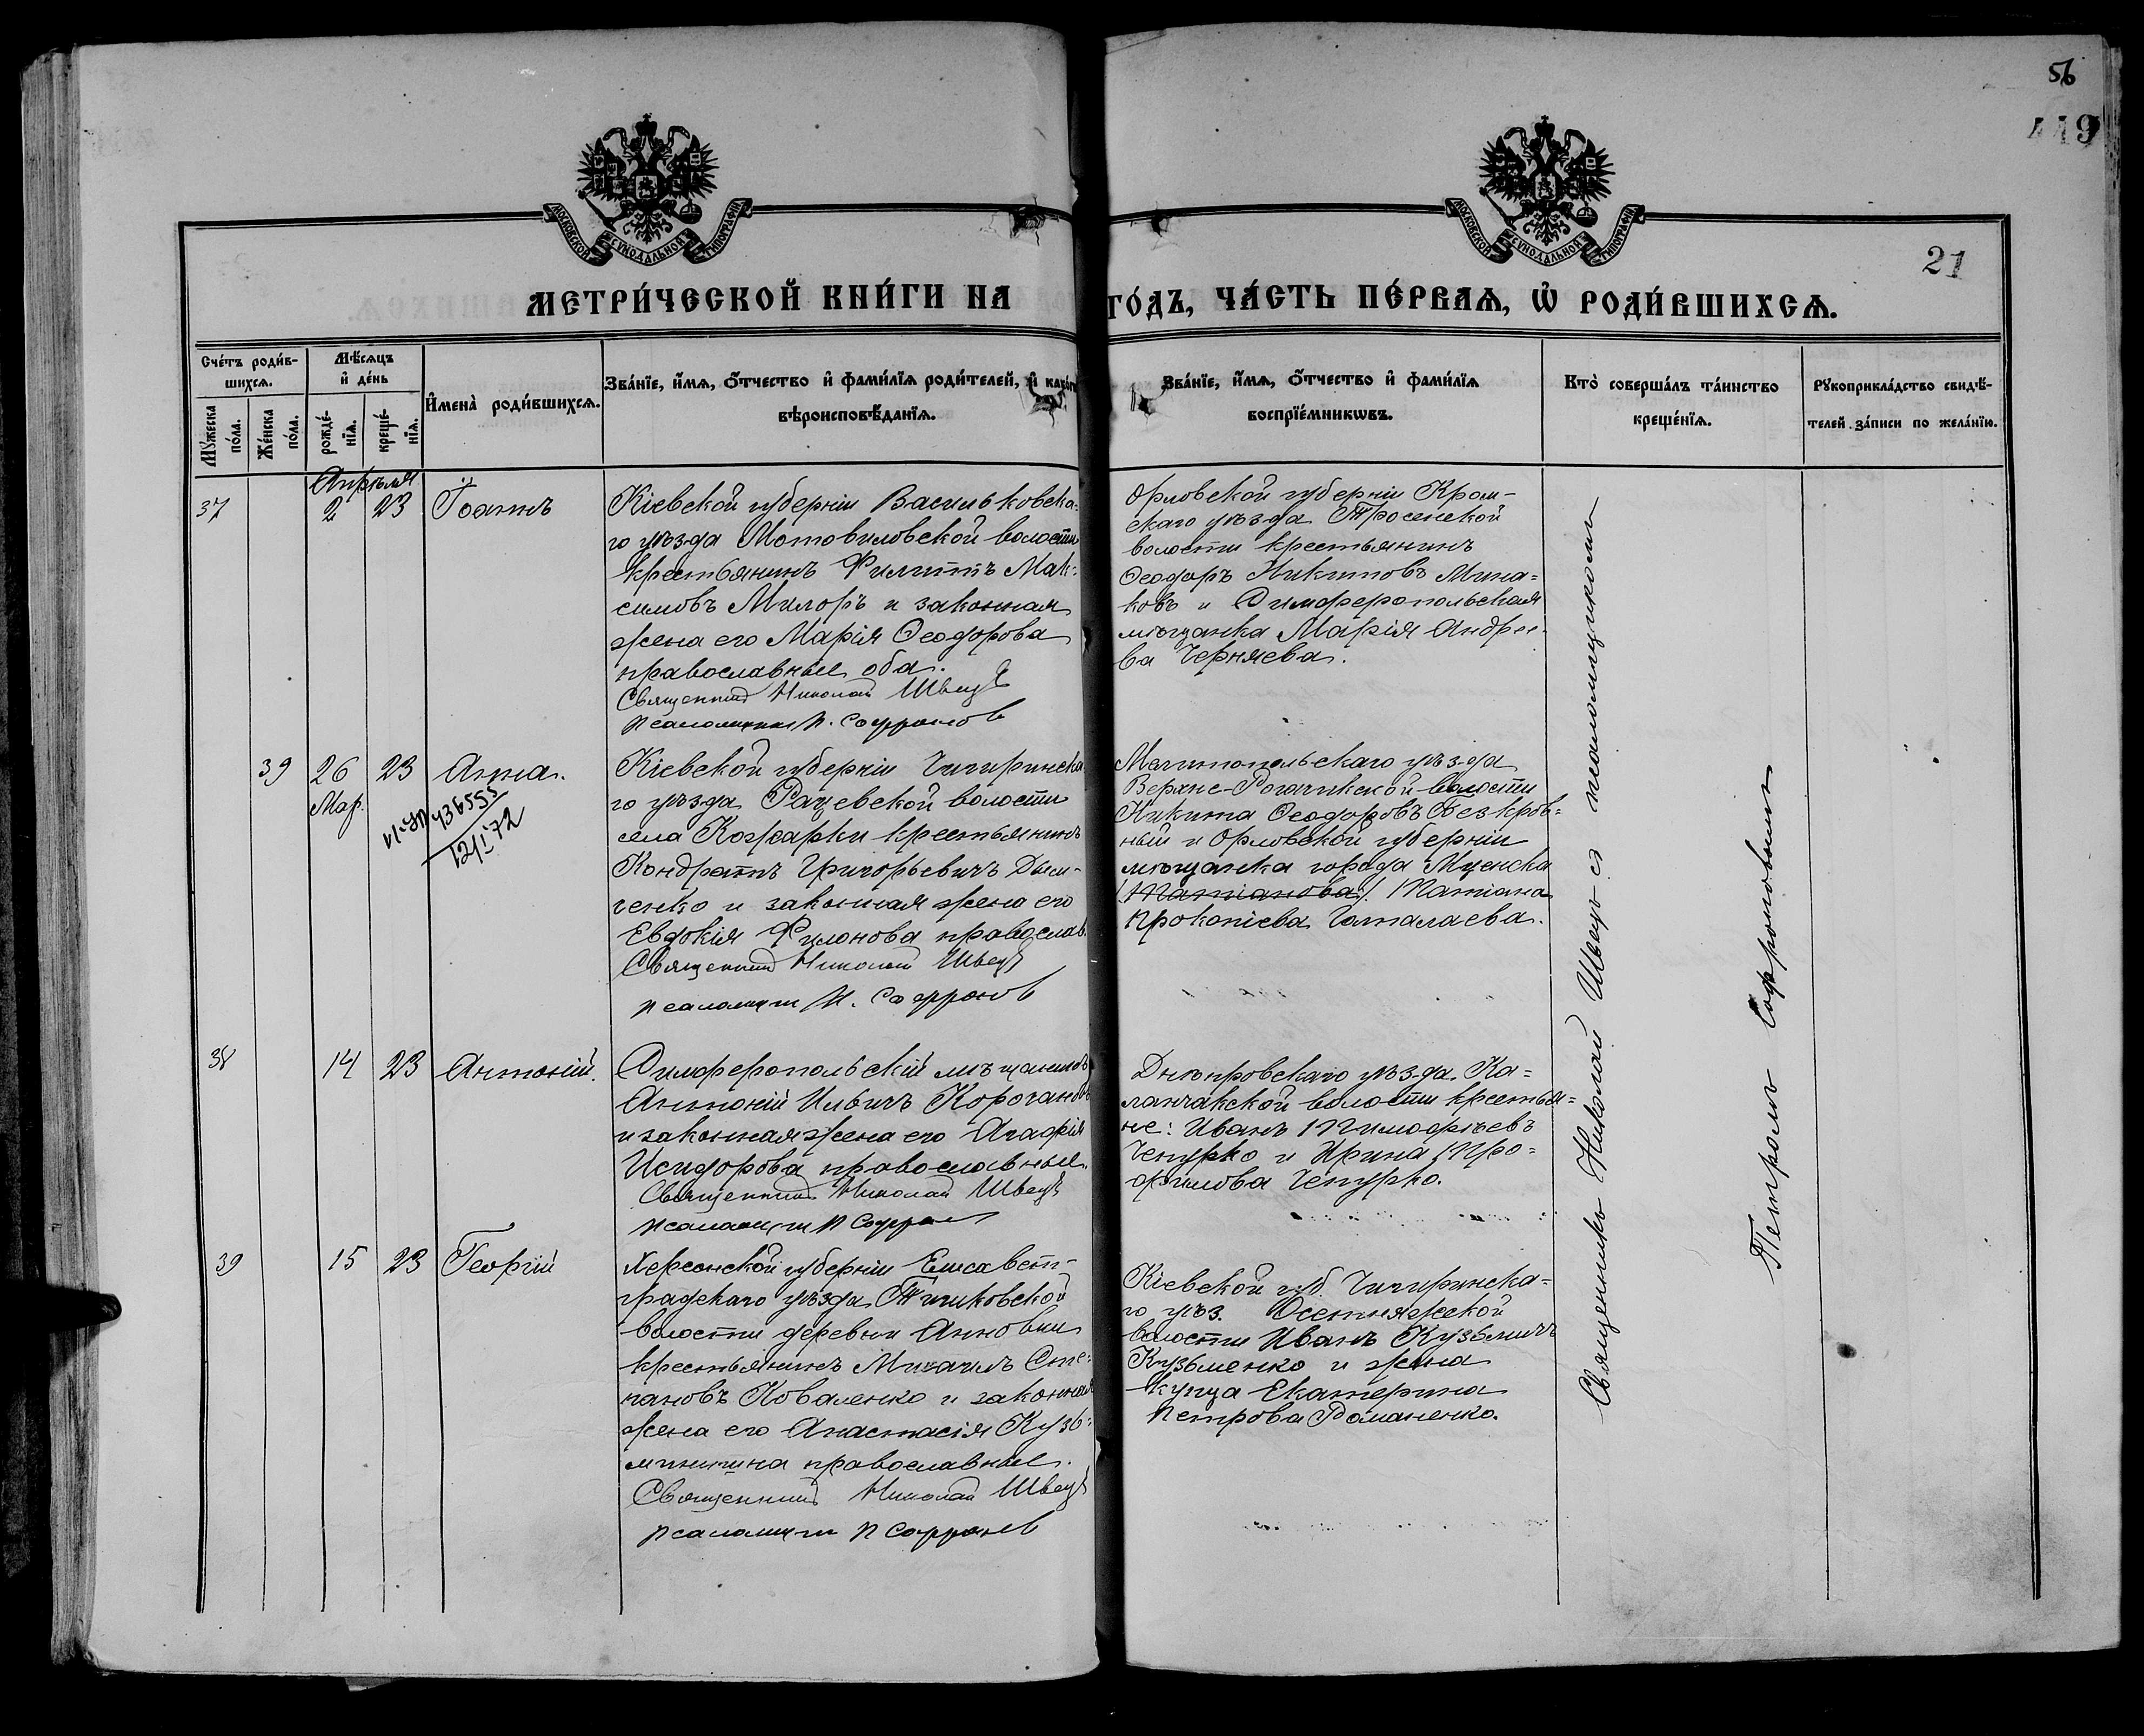 56
449
21
МОСКОВСКОЙ СѴНОДАЛЬНОЙ ТИПОГРАФІИ
МОСКОВСКОЙ СѴНОДАЛЬНОЙ ТИПОГРАФІИ
МЕТРИ́ЧЕСКОЙ КНИ́ГИ НА
ГО́ДЪ, ЧА́СТЬ ПЕ́РВАѦ, Ѡ҆ РОДИ́ВШИХСѦ.
Сче́тъ роди́в-
шихсѧ.
Мѣ́сѧцъ
и҆ де́нь
И҆мена̀ роди́вшихсѧ.
Зва́нїе, и҆́мѧ, ѻ҆́тчество и҆ фами́лїѧ роди́телей, и҆ како́гѡ
вѣроисповѣ́данїѧ.
Мꙋ́жеска
по́ла.
Же́нска
по́ла.
рожде́-
нїѧ.
креще́-
нїѧ.
Зва́нїе, и҆́мѧ, ѻ҆́тчество и҆ фами́лїѧ
воспрїе́мникѡвъ.
Кто̀ соверша́лъ та́инство
креще́нїѧ.
Рꙋкоприкла́дство свидѣ́-
телей за́писи по жела́нїю.
Апрѣля
37 2 23 Іоаннъ
Кіевской губерніи Васильковска-
го уѣзда Мотовиловской волости
крестьянинъ Филиппъ Мак-
симовъ Милоръ и законная
жена его Марія Ѳеодорова
православные оба.
Священникъ Николай Швецъ
псаломщикъ П. Софронов
Орловской губерніи Кром-
скаго уѣзда Тросенской
волости крестьянинъ
Ѳеодоръ Никитовъ Мина-
ковъ и Симферопольская
мѣщанка Марія Андрее-
ва Черняева.
39 26 23 Анна.
Мар.
VI-ЯП 436555
12/I 72
Кіевской губерніи Чигиринска-
го уѣзда Рацевской волости
села Кожарки крестьянинъ
Кондратъ Григорьевичъ Дем-
ченко и законная жена его
Евдокія Филонова православ.
Священникъ Николай Швецъ
псаломщик П. Софронов
Мелитопольскаго уѣзда
Верхне-Рогачикской волости
Никита Ѳеодоровъ Безкров-
ный и Орловской губерніи
мѣщанка города Мценска
/Татіанова/. Татіана
Прокопіева Голталаева.
38 14 23 Антоній.
Симферопольскій мѣщанинъ
Антоній Ильичъ Корогановъ
и законная жена его Агафія
Исидорова православные.
Священникъ Николай Швецъ
псаломщик П Софронов
Днѣпровскаго уѣзда, Ка-
ланчакской волости крестья-
не: Иванъ Тимофѣевъ
Чепурко и Ирина Тро-
фимова Чепурко.
39 15 23 Георгій
Херсонской губерніи Елисавет-
градскаго уѣзда Тишковской
волости деревни Анновки
крестьянинъ Михаилъ Сте-
пановъ Коваленко и законная
жена его Анастасія Кузь-
минична православные.
Священникъ Николай Швецъ
псаломщик П Софронов
Кіевской губ. Чигиринска-
го уѣз. Осетняжской
волости Иванъ Кузьмичъ
Кузьменко и жена
купца Екатерина
Петрова Романенко.
Священникъ Николай Швецъ съ псаломщикомъ
Петромъ Софроновымъ